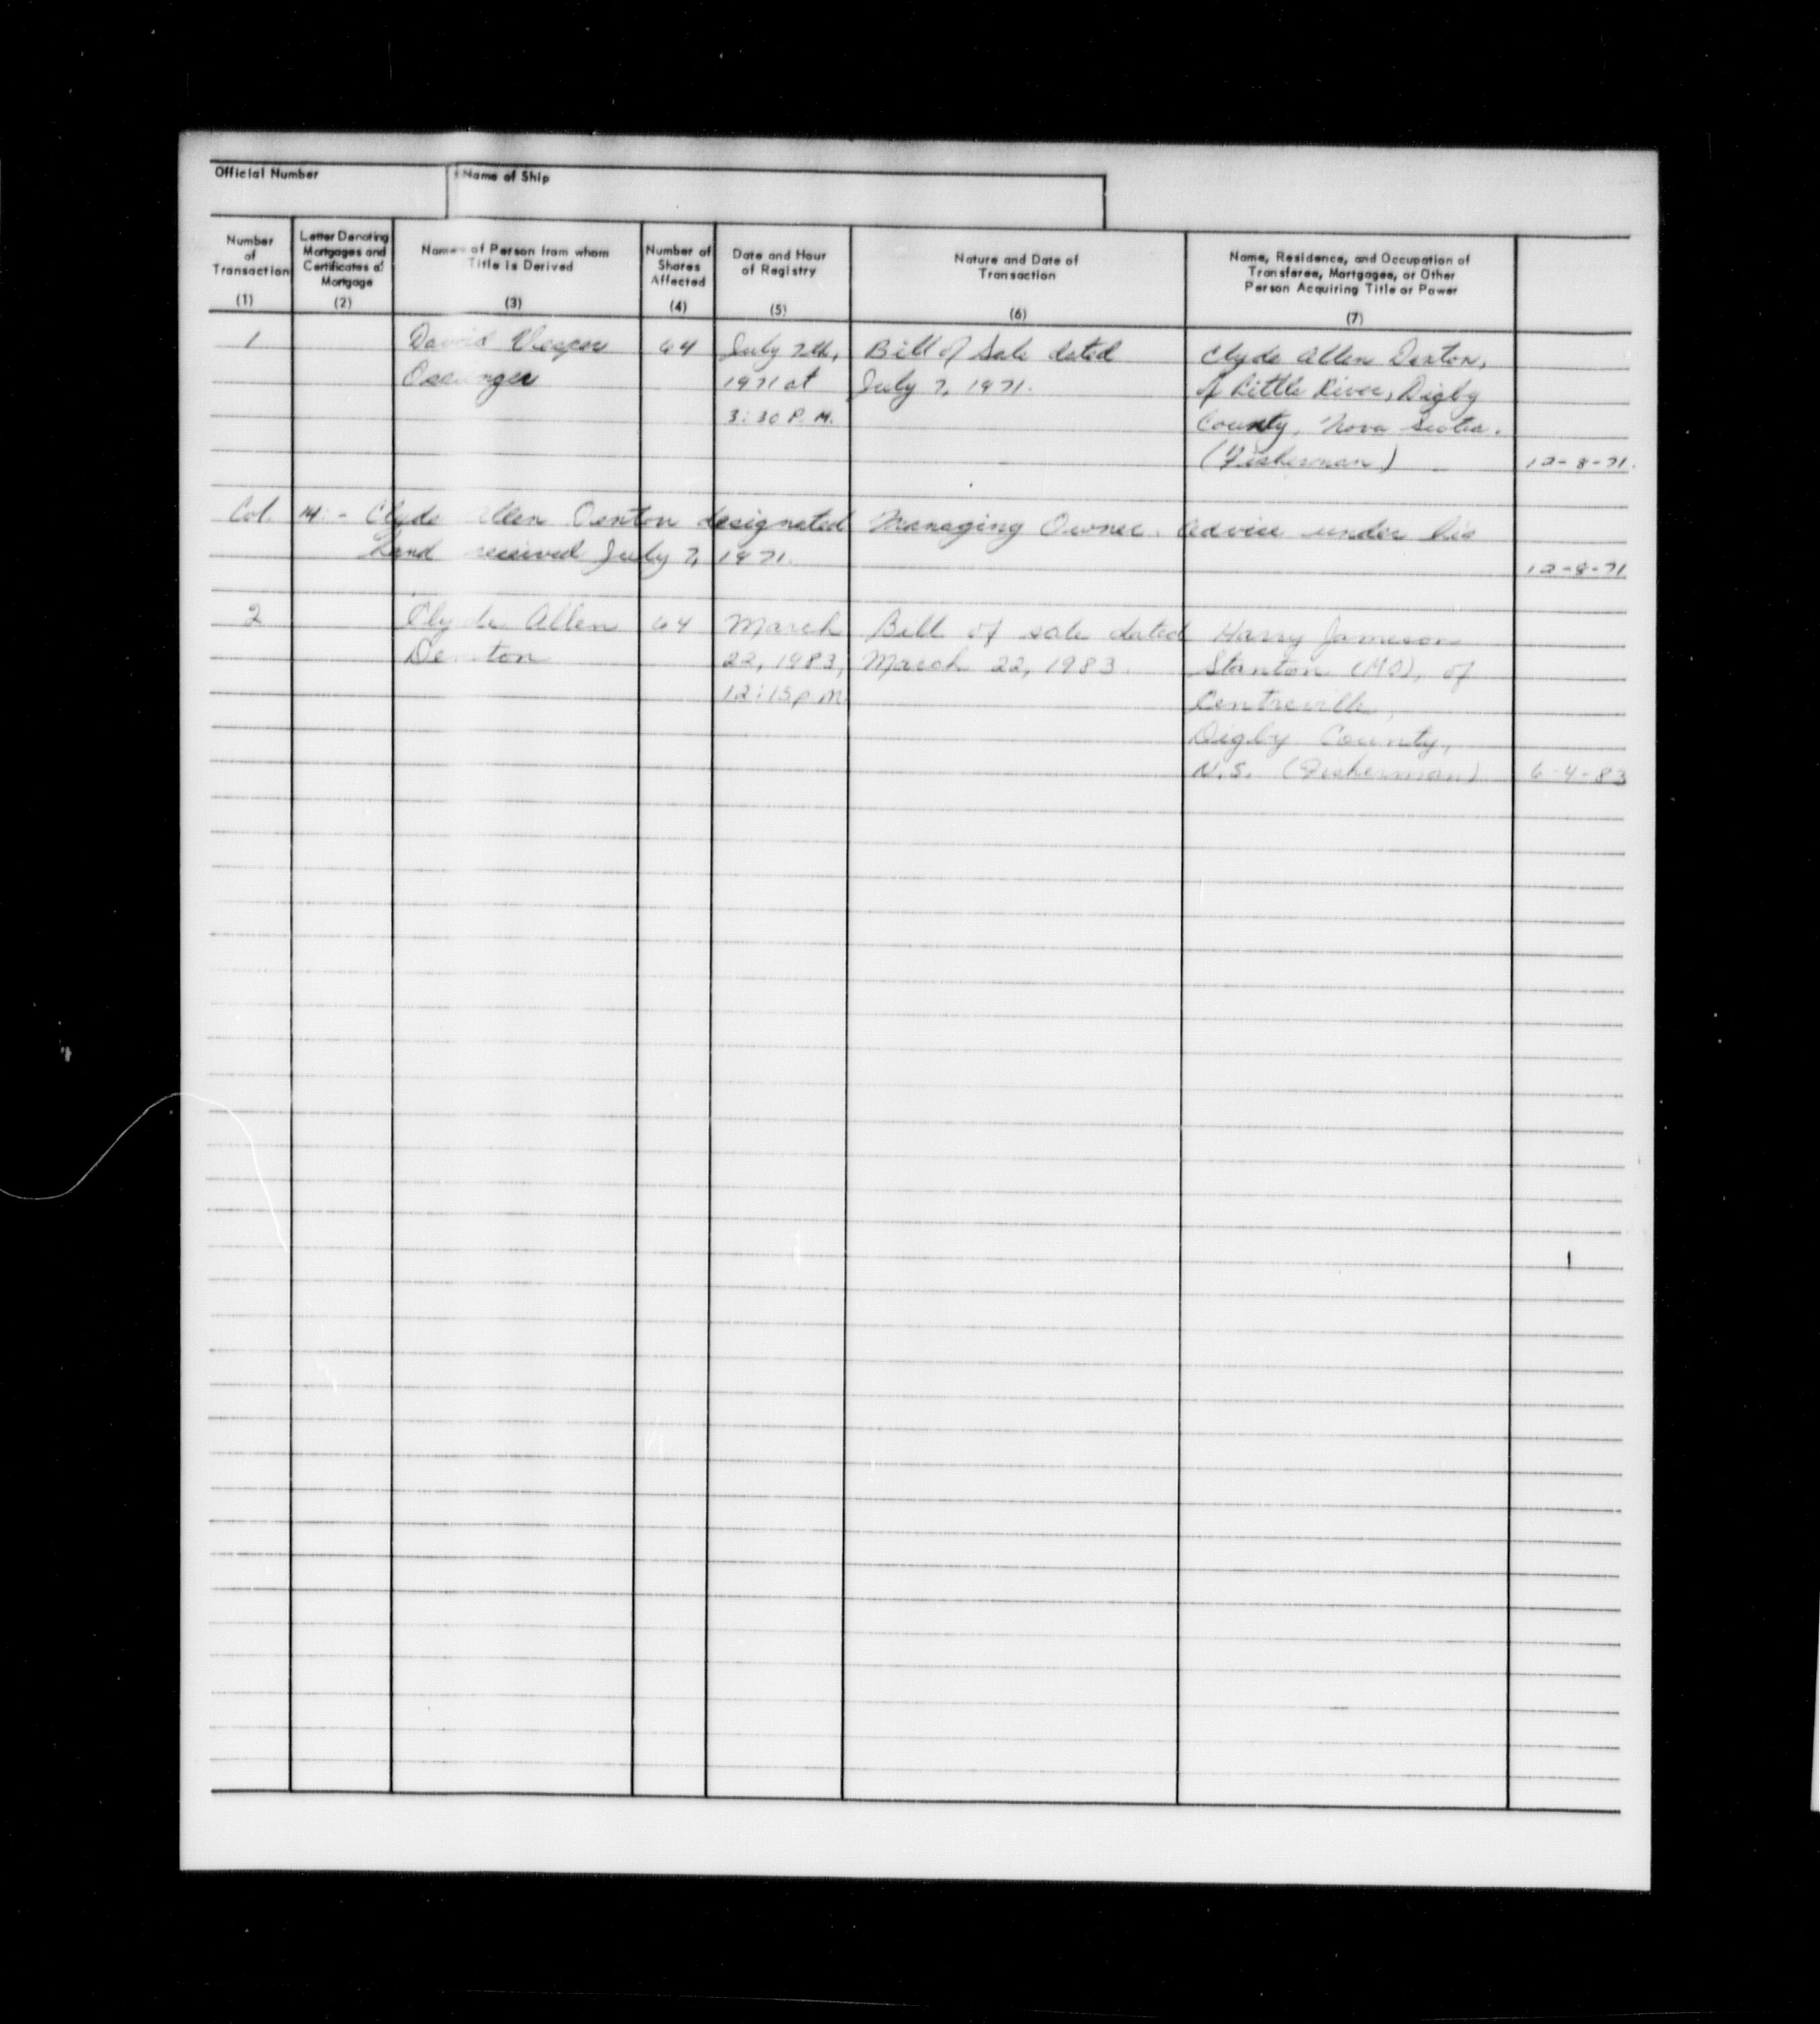 Official Number
Name of Ship
Number of Transaction (1)
Letter Denoting Mortgages and Certificates of Mortgage (2)
Name of Person from whom Title is Derived (3)
Number of Shares Affected (4)
Date and Hour of Registry (5)
Nature and Date of Transaction (6)
Name, Residence, and Occupation of Transferee, Mortgagee, or Other Person Acquiring Title or Power (7)
1 David 64 July 7th, Bill of Sale dated Clyde Allen Denton,
Ossinger 1971 at July 7, 1971. of Little River, Digby
3:30 P.M. County, Nova Scotia.
(Fisherman) 12-8-71.
Col. 14 - Clyde Allen Denton designated Managing Owner. Advice under his
hand received July 7, 1971.
12-8-71
2 Clyde Allen 64 March Bill of sale dated Harry Jameson
Denton 22, 1983, March 22, 1983. Stanton (MO), of
12:15 p.m. Centreville,
Digby County,
N.S. (Fisherman) 6-4-83